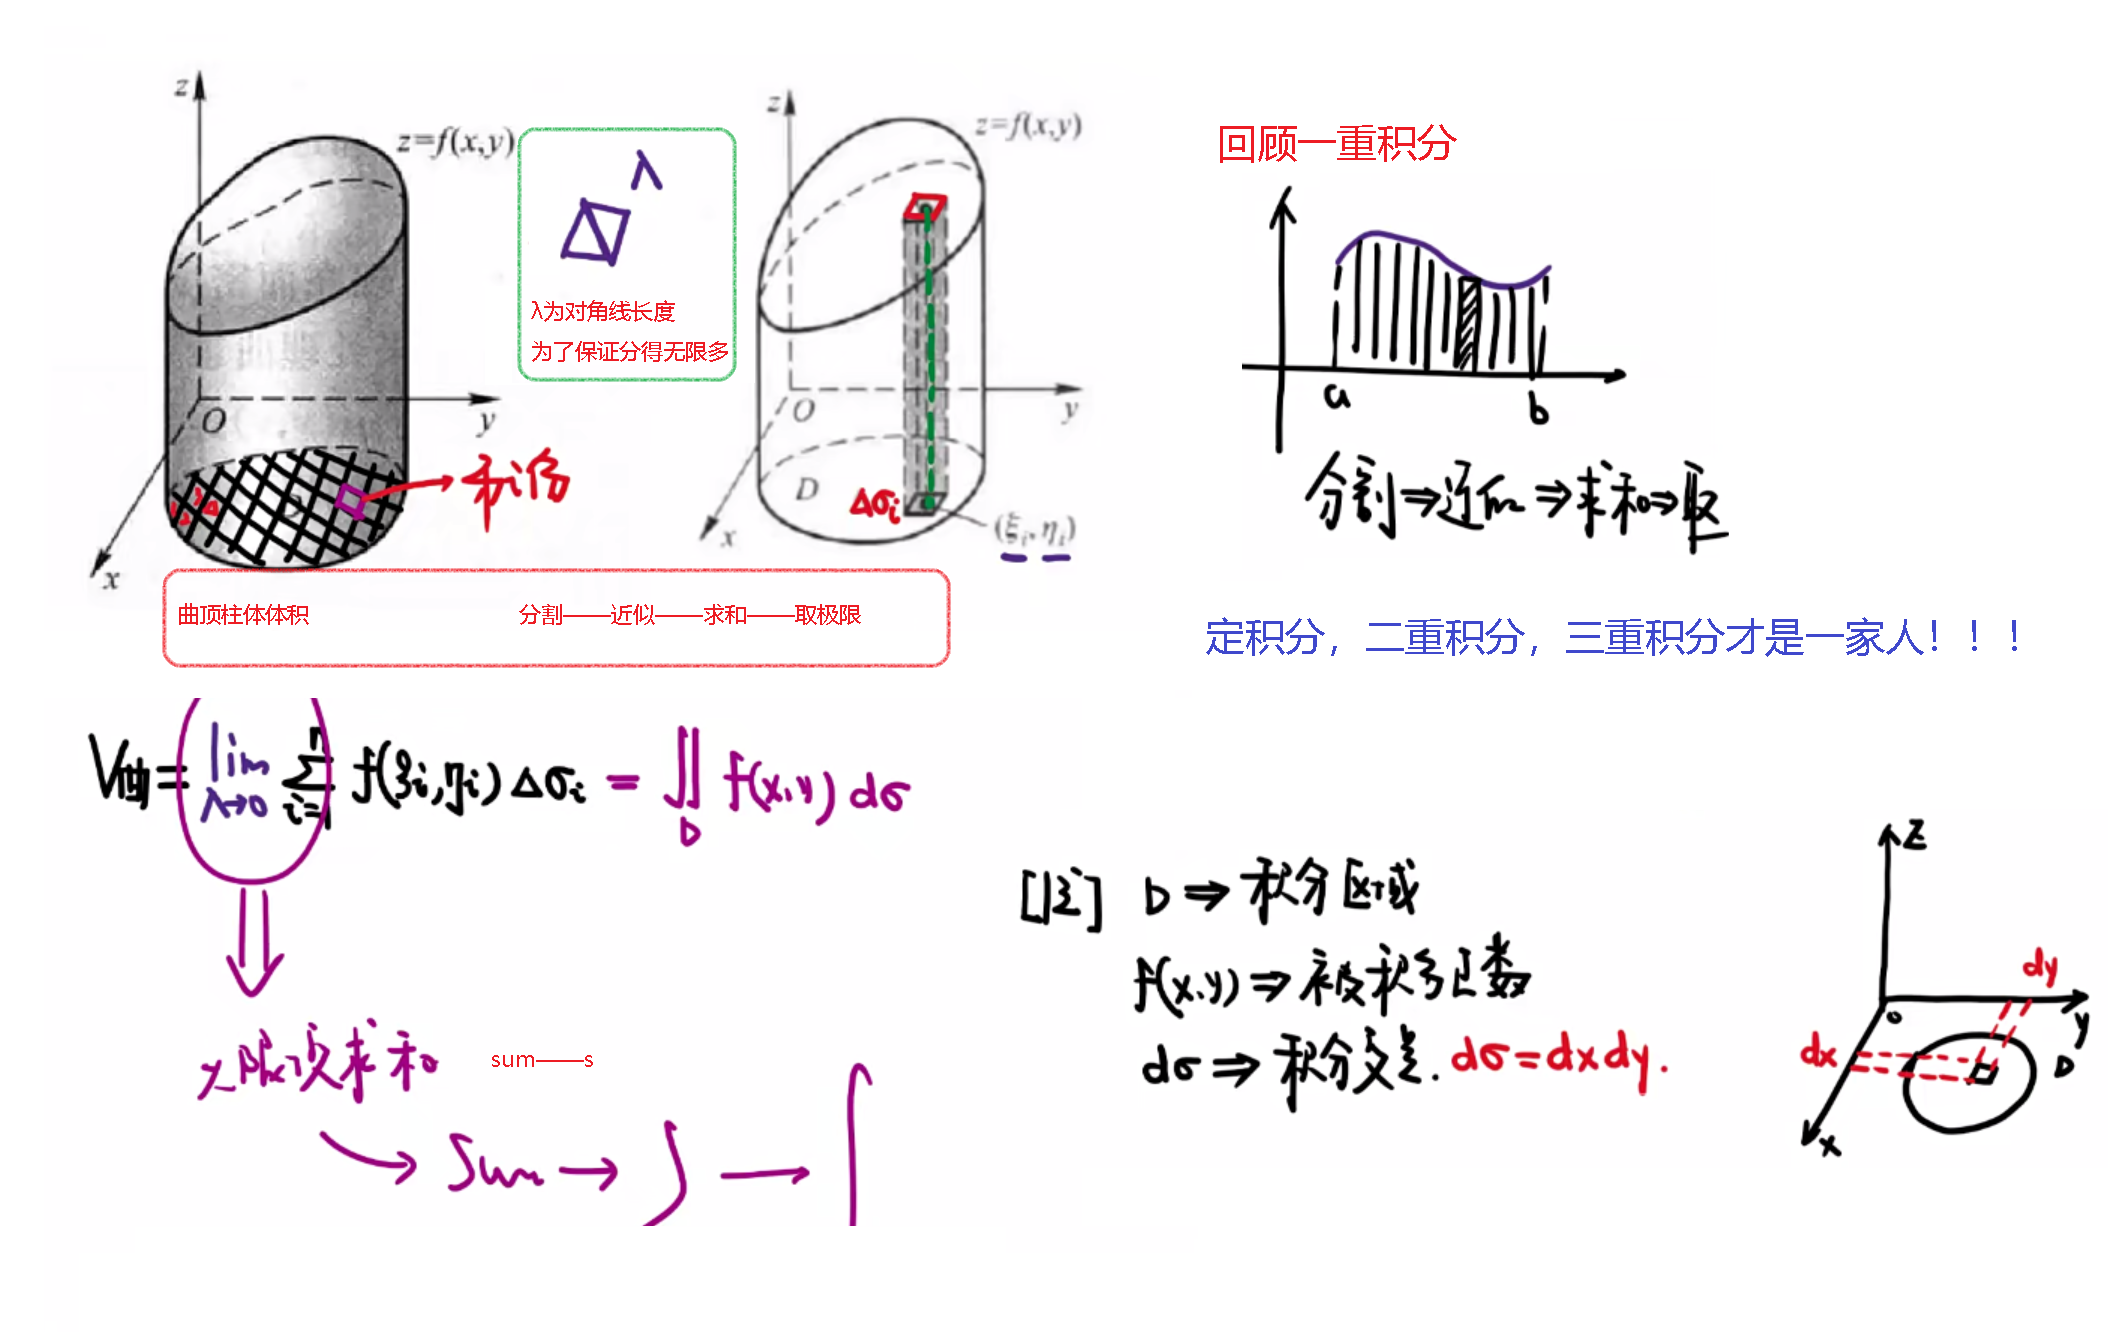 z
z=f(x,y)
O
y
x
1
2
3
第i份
λ
λ为对角线长度
为了保证分得无限多
z
z=f(x,y)
O
y
x
D
Δσi
(ξi, ηi)
曲顶柱体体积 分割——近似——求和——取极限
回顾一重积分
a
b
分割⇒近似⇒求和⇒取
定积分，二重积分，三重积分才是一家人！！！
V曲= lim λ→0 Σ i=1 n f(ξi,ηi) Δσi = ∬ D f(x,y) dσ
无限次求和
sum——s
Sum → ∫ → ∫
[注] D ⇒ 积分区域
f(x,y) ⇒ 被积函数
dσ ⇒ 积分变量. dσ=dxdy.
z
dy
o
y
dx
D
x